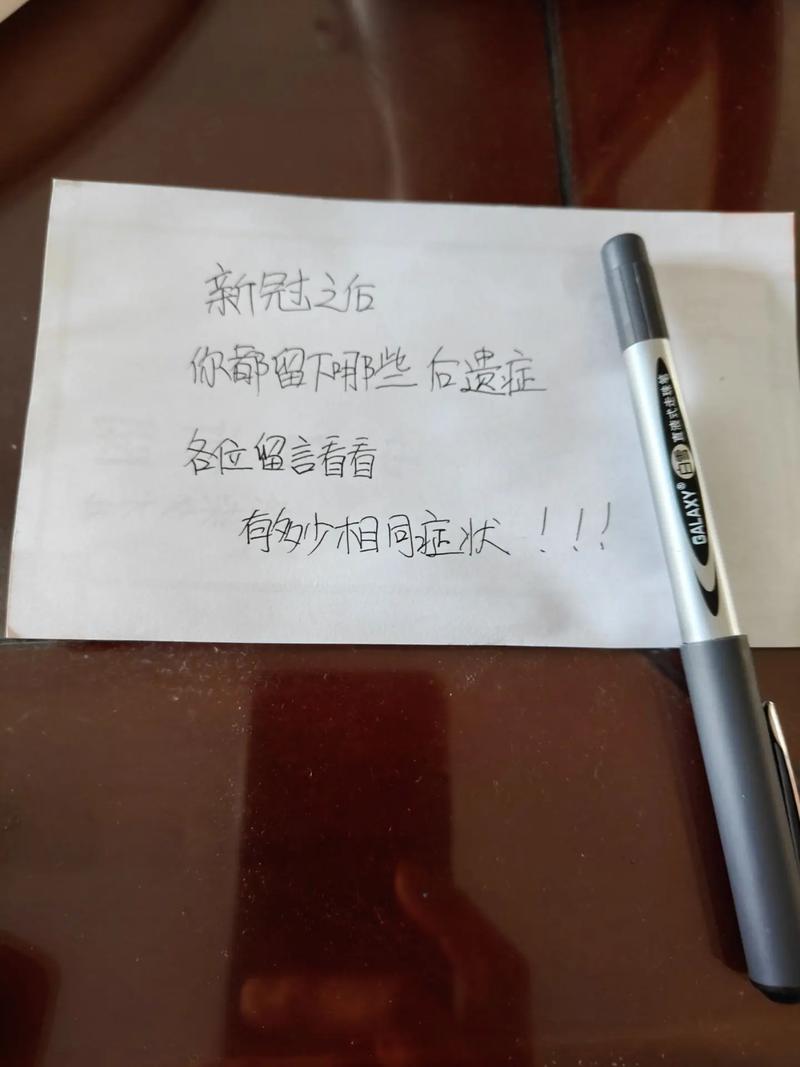 新冠之后
你都留下哪些后遗症
各位留言看看
有多少相同症状！！！
GALAXY® 白雪 直液式走珠笔